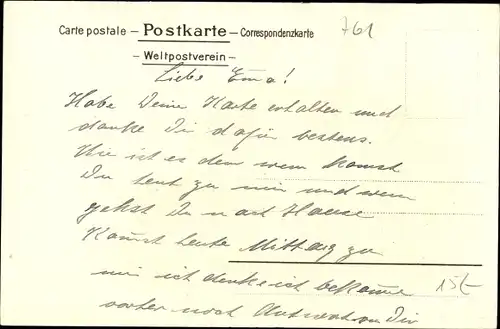 Carte postale – Postkarte – Correspondenzkarte
761
– Weltpostverein –
Liebe Ema!
Habe Deine Karte erhalten und
danke Dir dafür bestens.
Wie ist es den wen komst
Du heut zu mir und wen
gehst Du nach Hause
Komst heute Mittag zu
mir ich denke ich bekome
vorher noch Antwort von Dir
15/-